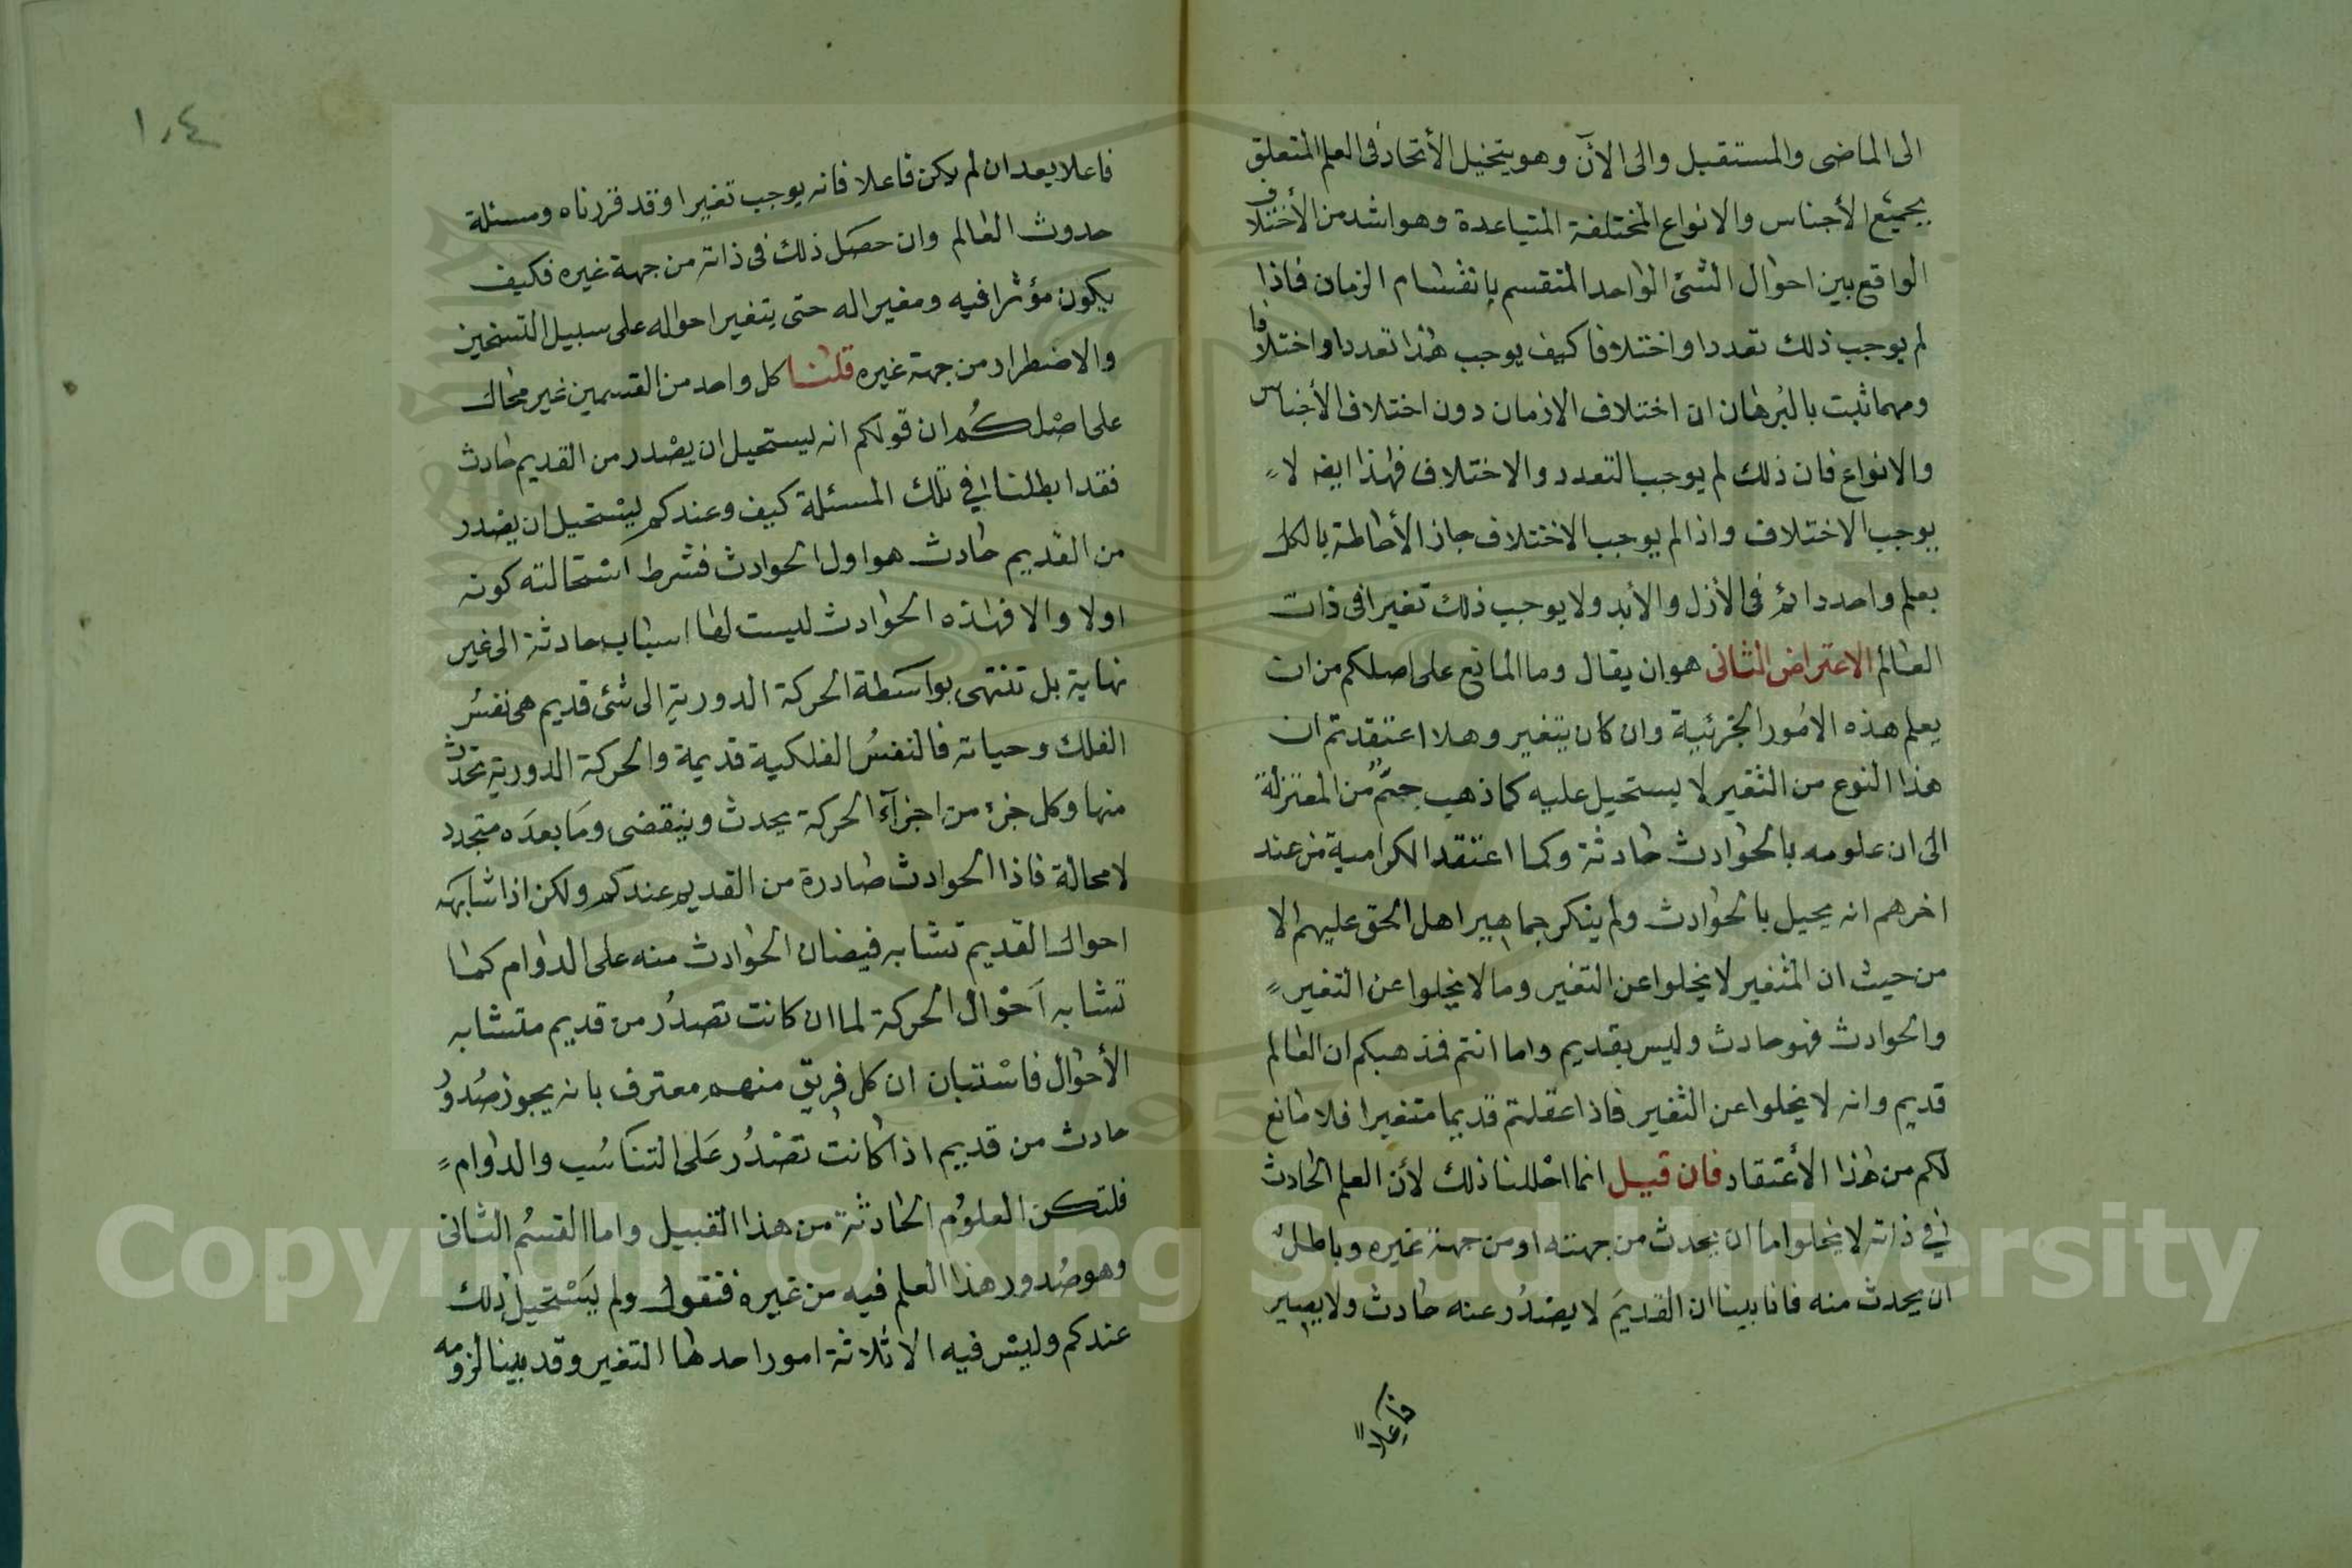 الى الماضى والمستقبل والى الآن وهو يتخيل الأتحاد فى العلم المتعلق
بجميع الأجناس والانواع المختلفة المتباعدة وهو اشد من الأختلاف
الواقع بين احوال الشئ الواحد المنقسم بإنقسام الزمان فاذا
لم يوجب ذلك تعددا واختلافا كيف يوجب هذا تعددا واختلافا
ومهما ثبت بالبرهان ان اختلاف الازمان دون اختلاف الأجناس
والانواع فان ذلك لم يوجب التعدد والاختلاف فهذا ايضه لا
يوجب الاختلاف واذا لم يوجب الاختلاف جاز الأحاطة بالكل
بعلم واحد دائم فى الأزل والأبد ولا يوجب ذلك تغيرا فى ذات
العالم الاعتراض الثانى هو ان يقال وما المانع على اصلكم من ان
يعلم هذه الامور الجزئية وان كان يتغير وهلا اعتقدتم ان
هذا النوع من التغير لا يستحيل عليه كما ذهب جهم من المعتزلة
الى ان علومه بالحوادث حادثة وكما اعتقد الكرامية من عند
اخرهم انه يحيل بالحوادث ولم ينكر جماهير اهل الحق عليهم الا
من حيث ان المتغير لا يخلوا عن التغير وما لا يخلوا عن التغير
والحوادث فهو حادث وليس بقديم واما انتم فمذهبكم ان العالم
قديم وانه لا يخلوا عن التغير فاذا عقلتم قديما متغيرا فلا مانع
لكم من هذا الأعتقاد فان قيل انما احللنا ذلك لأن العلم الحادث
في ذاته لا يخلوا اما ان يحدث من جهته او من جهة غيره وباطل
ان يحدث منه فانا بينا ان القديم لا يصدر عنه حادث ولا يصير
فاعلاً
١٠٤
فاعلا بعد ان لم يكن فاعلا فانه يوجب تغيرا وقد قررناه ومسئلة
حدوث العالم وان حصل ذلك فى ذاته من جهة غيره فكيف
يكون مؤثرا فيه ومغيرا له حتى يتغير احواله على سبيل التسخير
والاضطرار من جهة غيره قلنا كل واحد من القسمين غير محال
على اصلكم ان قولكم انه يستحيل ان يصدر من القديم حادث
فقد ابطلنا في تلك المسئلة كيف وعندكم يستحيل ان يصدر
من القديم حادث هو اول الحوادث فشرط استحالته كونه
اولا والا فهذه الحوادث ليست لها اسباب حادثة الى غير
نهاية بل تنتهى بواسطة الحركة الدورية الى شئ قديم هى نفس
الفلك وحياته فالنفس الفلكية قديمة والحركة الدورية تحدث
منها وكل جزء من اجزآء الحركة يحدث وينقضى وما بعده متجدد
لا محالة فاذا الحوادث صادرة من القديم عندكم ولكن اذا شابهه
احوال القديم تشابه فيضان الحوادث منه على الدوام كما
تشابه احوال الحركة لما ان كانت تصدر من قديم متشابه
الأحوال فاستبان ان كل فريق منهم معترف بانه يجوز صدور
حادث من قديم اذا كانت تصدر على التناسب والدوام
فلتكن العلوم الحادثة من هذا القبيل واما القسم الثانى
وهو صدور هذا العلم فيه من غيره فنقول ولم يستحيل ذلك
عندكم وليس فيه الا ثلاثة امور احدها التغير وقد بينا لزومه
Copyright © King Saud University
1957